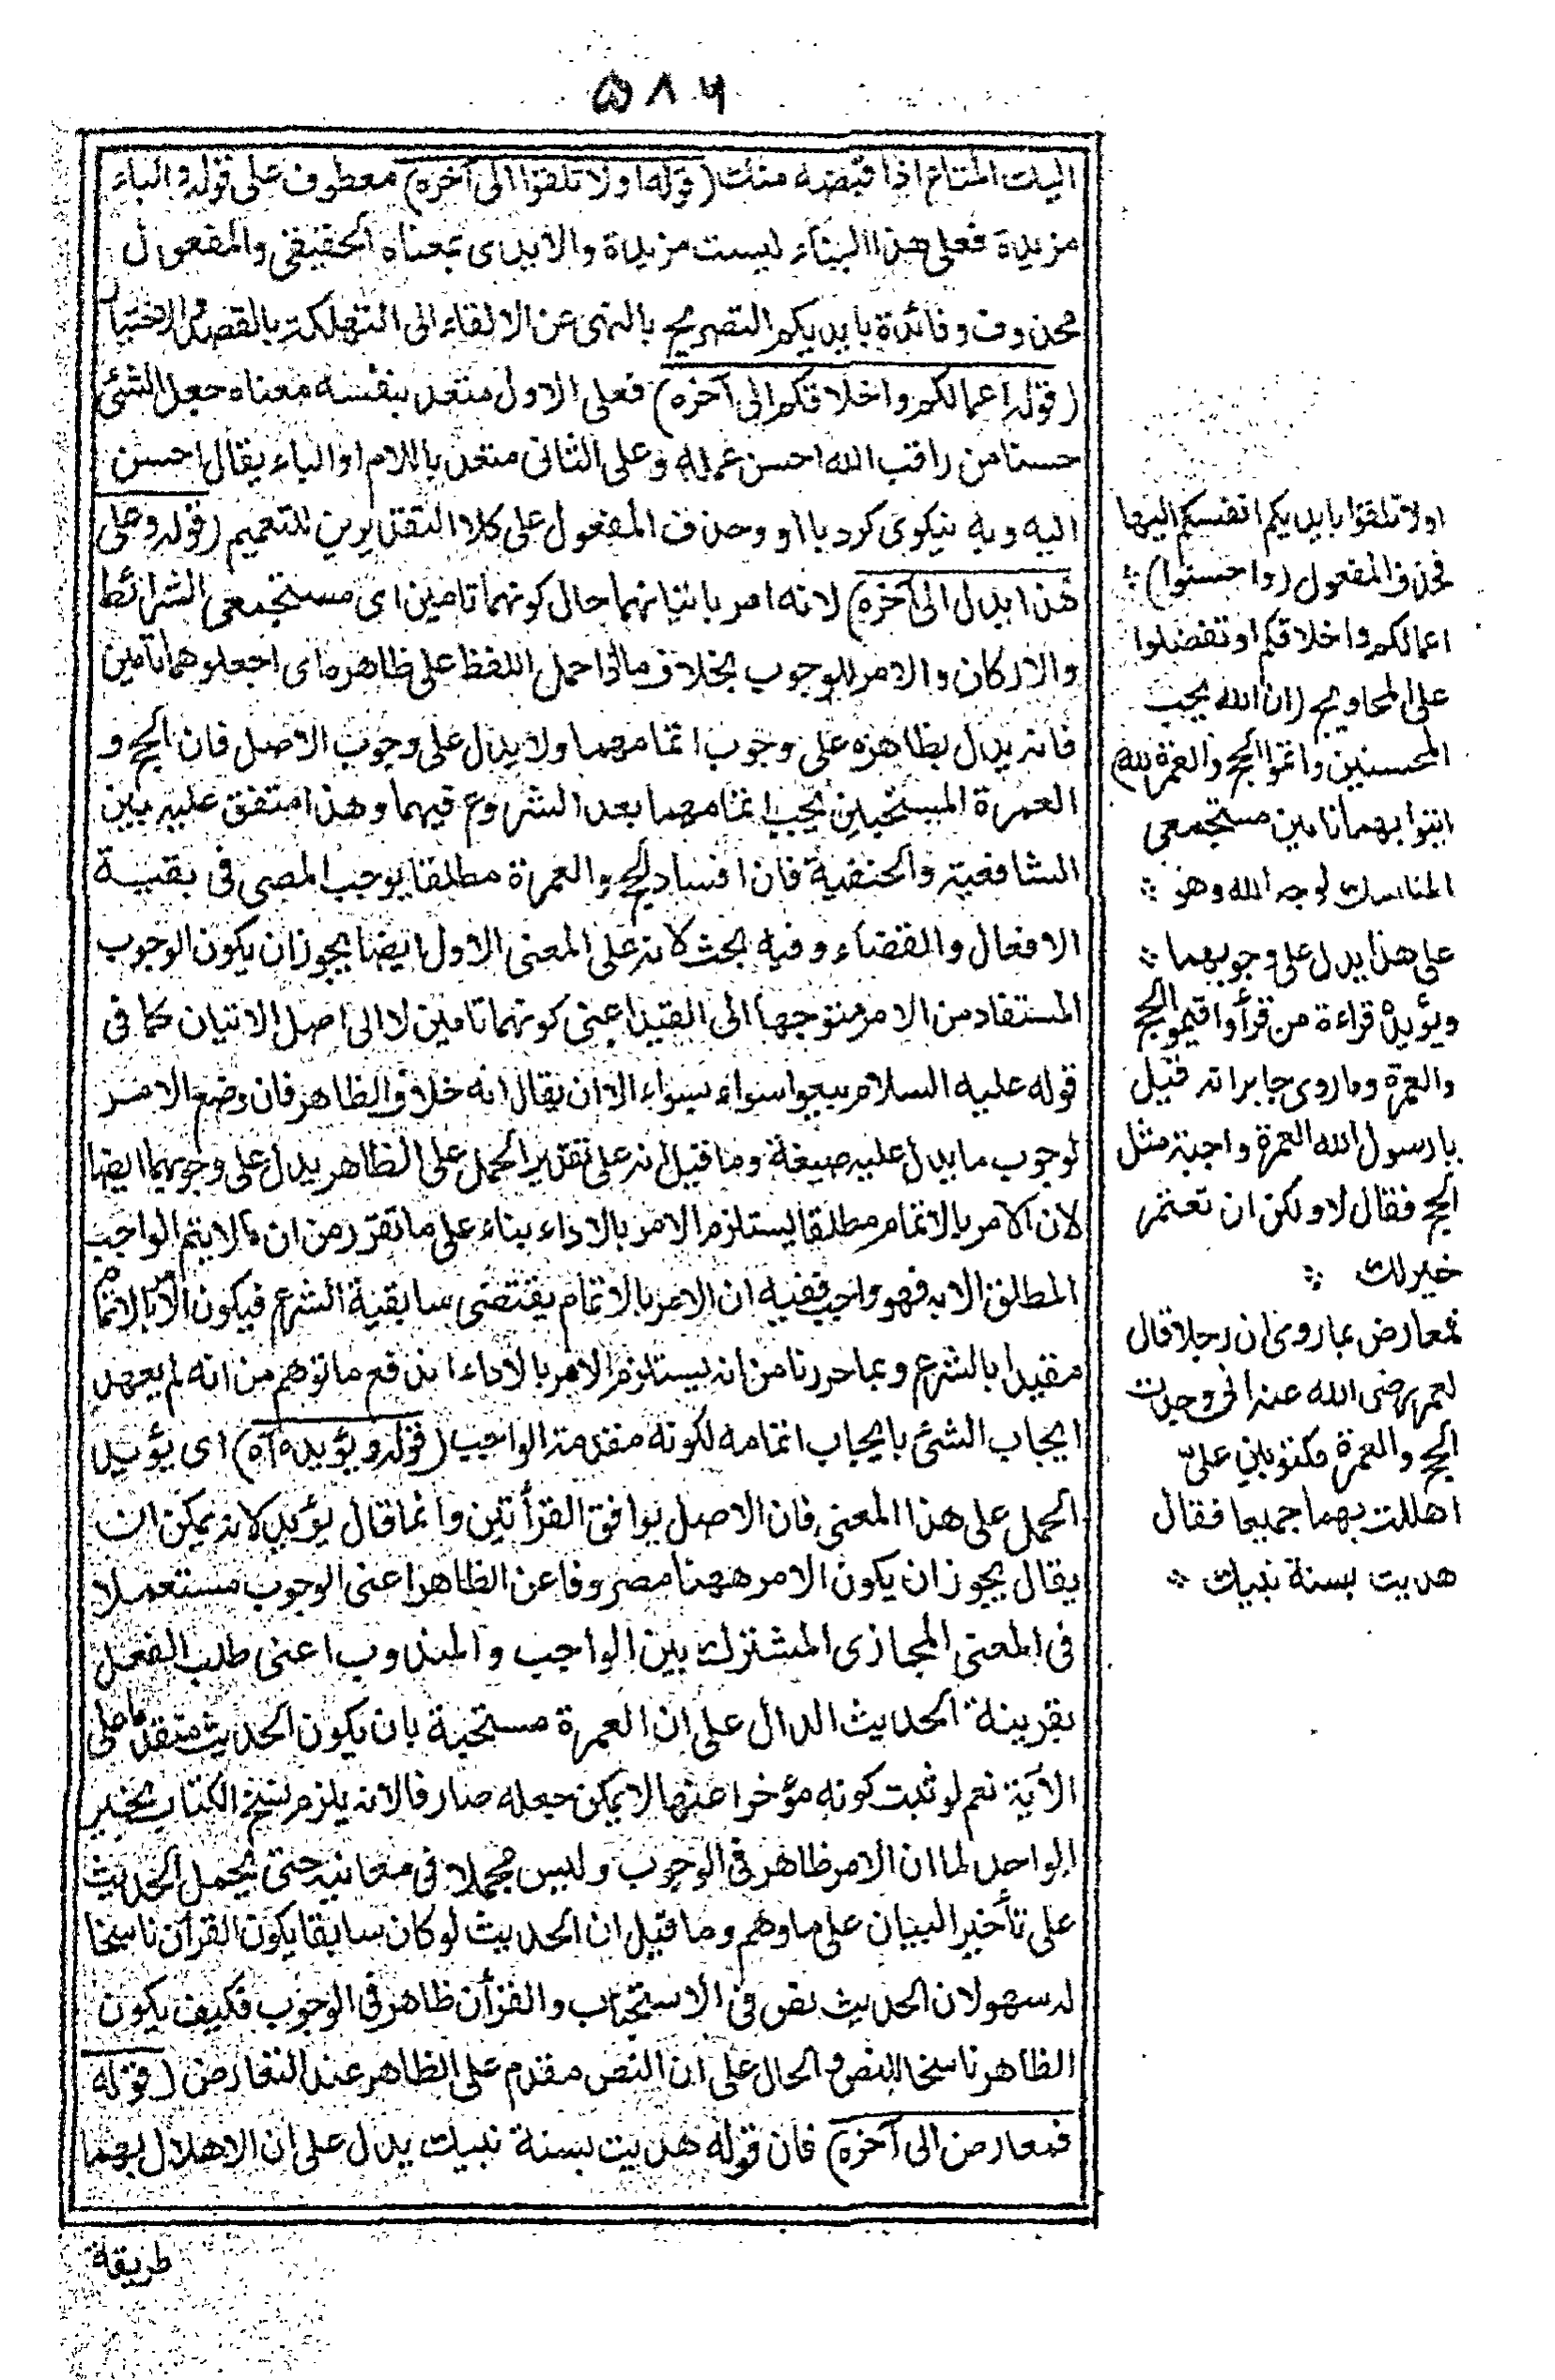 ٥٨٦
اليك المتاع اذا قبضه منك (قوله او لا تلقوا الى آخره) معطوف على قوله والباء
مزيدة فعلى هذا الباء ليست مزيدة والايدى بمعناه الحقيقى والمفعول
محذوف وفائدة بايديكم التصريح بالنهى عن الالقاء الى التهلكة بالقصد والاختيار
(قوله اعمالكم واخلاقكم الى آخره) فعلى الاول متعد بنفسه معناه جعل الشئ
حسنا من راقب الله احسن عمله وعلى الثانى متعد باللام او الباء يقال احسن
اليه وبه نيكوى كرد با او وحذف المفعول على كلا التقديرين للتعميم (قوله وعلى
هذا يدل الى آخره) لانه امر باتيانهما حال كونهما تامين اى مستجمعى الشرائط
والاركان والامر للوجوب بخلاف ما اذا حمل اللفظ على ظاهره اى اجعلوهما تامين
فانه يدل بظاهره على وجوب اتمامهما ولا يدل على وجوب الاصل فان الحج و
العمرة المستحبين يجب اتمامهما بعد الشروع فيهما وهذا متفق عليه بين
الشافعية والحنفية فان افساد الحج والعمرة مطلقا يوجب المضى فى بقية
الافعال والقضاء وفيه بحث لانه على المعنى الاول ايضا يجوز ان يكون الوجوب
المستفاد من الامر متوجها الى القيد اعنى كونهما تامين لا الى اصل الاتيان كما فى
قوله عليه السلام بيعوا سواء بسواء الا ان يقال انه خلاف الظاهر فان وضع الامر
لوجوب ما يدل عليه صيغة وما قيل انه على تقدير الحمل على الظاهر يدل على وجوبهما ايضا
لان الامر بالاتمام مطلقا يستلزم الامر بالاداء بناء على ما تقرر من ان ما لا يتم الواجب
المطلق الا به فهو واجب ففيه ان الامر بالاتمام يقتضى سابقية الشرع فيكون الامر بالاتمام
مقيدا بالشرع وبما حررنا من انه يستلزم الامر بالاداء اندفع ما توهم من انه لم يعهد
ايجاب الشئ بايجاب اتمامه لكونه مقدمة الواجب (قوله ويؤيده اه) اى يؤيد
الحمل على هذا المعنى فان الاصل يوافق القرأتين وانما قال يؤيد لانه يمكن ان
يقال يجوز ان يكون الامر ههنا مصروفا عن الظاهر اعنى الوجوب مستعملا
فى المعنى المجازى المشترك بين الواجب والمندوب اعنى طلب الفعل
بقرينة الحديث الدال على ان العمرة مستحبة بان يكون الحديث متقدما على
الآية نعم لو ثبت كونه مؤخرا عنها لا يمكن جعله صارفا لانه يلزم نسخ الكتاب بخبر
الواحد لما ان الامر ظاهر فى الوجوب وليس مجملا فى معانيه حتى يحمل الحديث
على تأخير البيان على ما وهم وما قيل ان الحديث لو كان سابقا يكون القرآن ناسخا
له سهو لان الحديث نص فى الاستحباب والقرأن ظاهر فى الوجوب فكيف يكون
الظاهر ناسخا للنص والحال على ان النص مقدم على الظاهر عند التعارض (قوله
فمعارض الى آخره) فان قوله هديت بسنة نبيك يدل على ان الاهلال بهما
طريقة
او لا تلقوا بايديكم انفسكم اليها
فحذف المفعول (واحسنوا)
اعمالكم واخلاقكم او تفضلوا
على المحاويج (ان الله يحب
المحسنين واتموا الحج والعمرة لله)
ائتوا بهما تامين مستجمعى
المناسك لوجه الله وهو
على هذا يدل على وجوبهما
ويؤيده قراءة من قرأ واقيموا الحج
والعمرة وما روى جابر انه قيل
يا رسول الله العمرة واجبة مثل
الحج فقال لا ولكن ان تعتمر
خير لك
فمعارض بما روى ان رجلا قال
لعمر رضى الله عنه انى وجدت
الحج والعمرة مكتوبين علىّ
اهللت بهما جميعا فقال
هديت بسنة نبيك